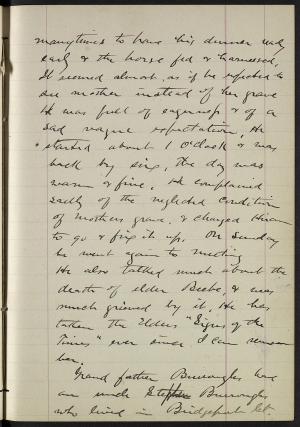 many times to have his dinner ready
early & the horse fed & harnessed,
It seemed almost, as if he expected to
see mother instead of her grave
He was full of eagerness & of a
sad vague expectation, He
started about 1 O'Clock & was
back by six, the day was
warm & fine, He complained
sadly of the neglected condition
of mothers grave, & charged Hiram
to go & fix it up, On Sunday
he went again to meeting
He also talked much about the
death of elder Beebe, & was
much grieved by it, He has
taken the Elders "Signs of the
Times" ever since I can remem
ber.
Grand father Burroughs had
an uncle Stephen Burroughs
who lived in Bridgeport Ct.